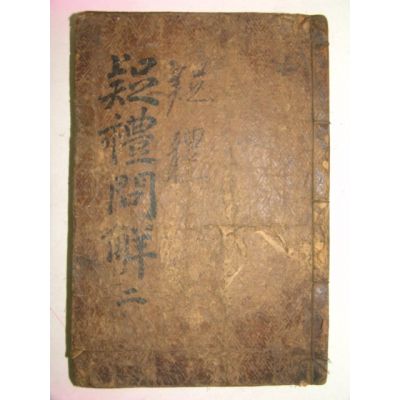 疑禮問解 二
疑禮